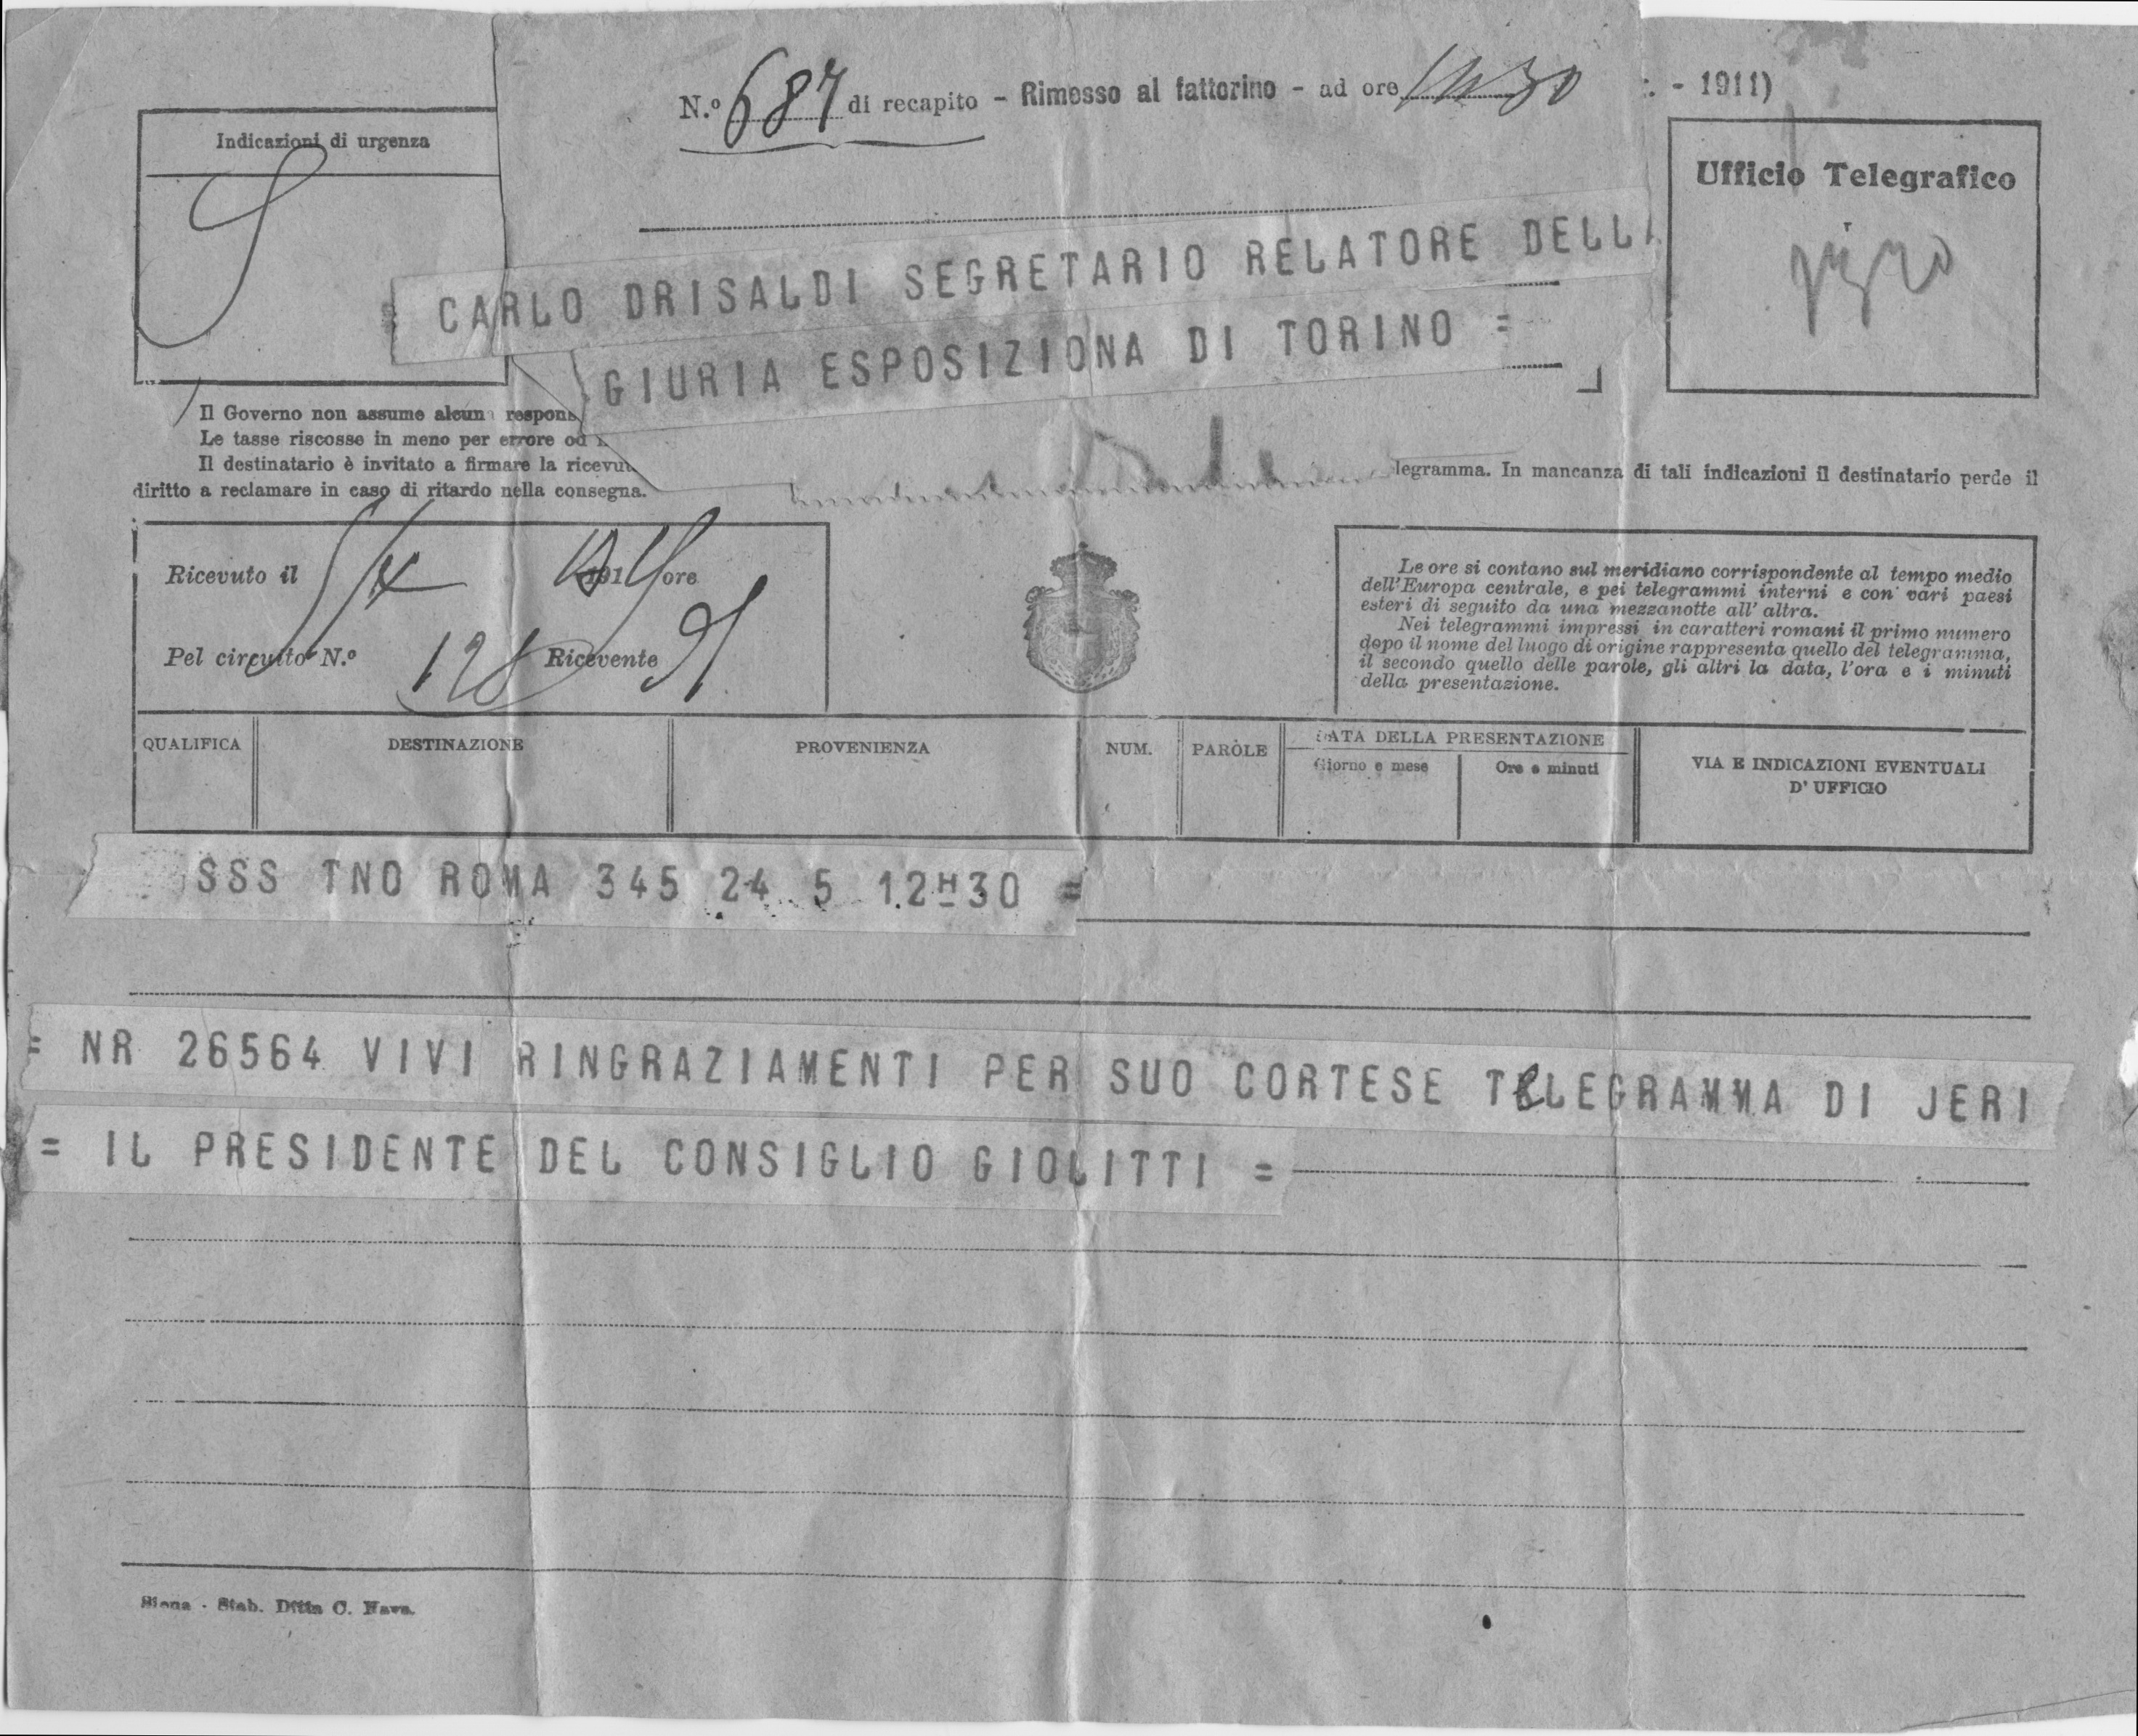 N.º 687 di recapito - Rimesso al fattorino - ad ore 14 30 - 1911)
Indicazioni di urgenza
Ufficio Telegrafico
= CARLO DRISALDI SEGRETARIO RELATORE DELLA
GIURIA ESPOSIZIONA DI TORINO =
Il Governo non assume alcun respons
Le tasse riscosse in meno per errore od
Il destinatario è invitato a firmare la ricevut
legramma. In mancanza di tali indicazioni il destinatario perde il
diritto a reclamare in caso di ritardo nella consegna.
Ricevuto il 5/X 191 ore
Pel circuito N.º 128 Ricevente
Le ore si contano sul meridiano corrispondente al tempo medio
dell'Europa centrale, e pei telegrammi interni e con vari paesi
esteri di seguito da una mezzanotte all' altra.
Nei telegrammi impressi in caratteri romani il primo numero
dopo il nome del luogo di origine rappresenta quello del telegramma,
il secondo quello delle parole, gli altri la data, l'ora e i minuti
della presentazione.
QUALIFICA DESTINAZIONE PROVENIENZA NUM. PARÒLE DATA DELLA PRESENTAZIONE VIA E INDICAZIONI EVENTUALI
Giorno e mese Ore e minuti D' UFFICIO
SSS TNO ROMA 345 24 5 12H30 =
= NR 26564 VIVI RINGRAZIAMENTI PER SUO CORTESE TELEGRAMMA DI JERI
= IL PRESIDENTE DEL CONSIGLIO GIOLITTI =
Siena - Stab. Ditta C. Nava.